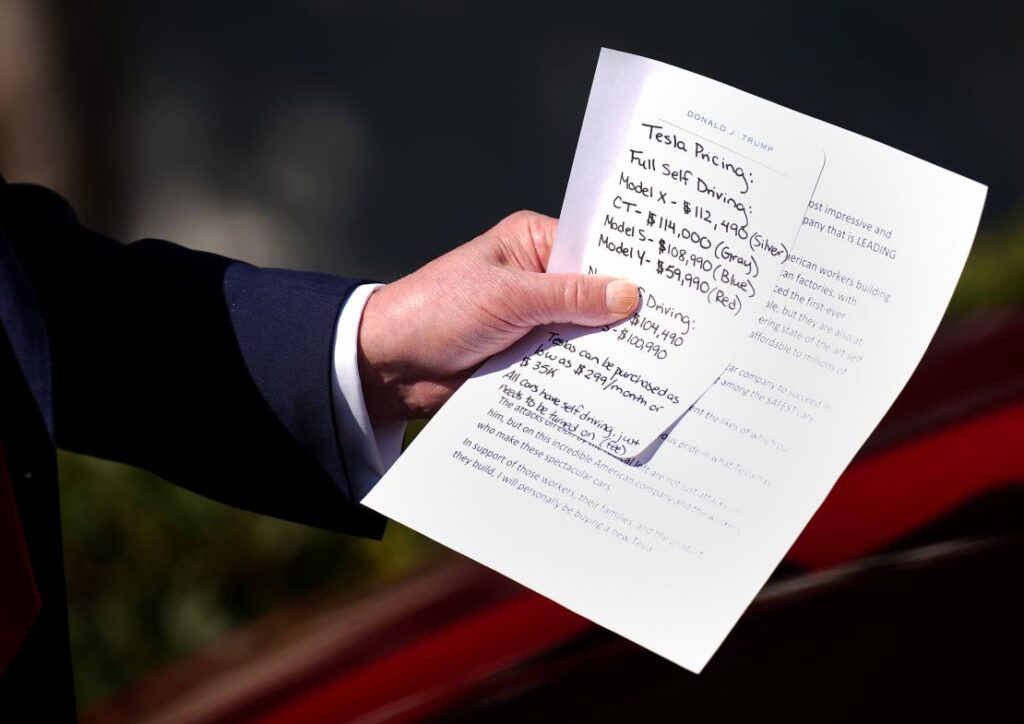 DONALD J. TRUMP
Tesla Pricing:
Full Self Driving:
Model X - $112,490 (Silver)
CT - $114,000 (Gray)
Model S - $108,990 (Blue)
Model Y - $59,990 (Red)
Driving:
$104,490
- $100,990
Teslas can be purchased as
low as $299/month or
$35K
All cars have self driving, just
needs to be turned on (fee)
ost impressive and
pany that is LEADING
merican workers building
can factories, with
ced the first-ever
ale, but they are also at
ering state-of-the-art self
affordable to millions of
ar company to succeed in
among the SAFEST cars
ent the likes of which our
ous pride in what Tesla has
The attacks on left are not just attacks on
him, but on this incredible American company and the workers
who make these spectacular cars.
In support of those workers, their families, and the product
they build, I will personally be buying a new Tesla.